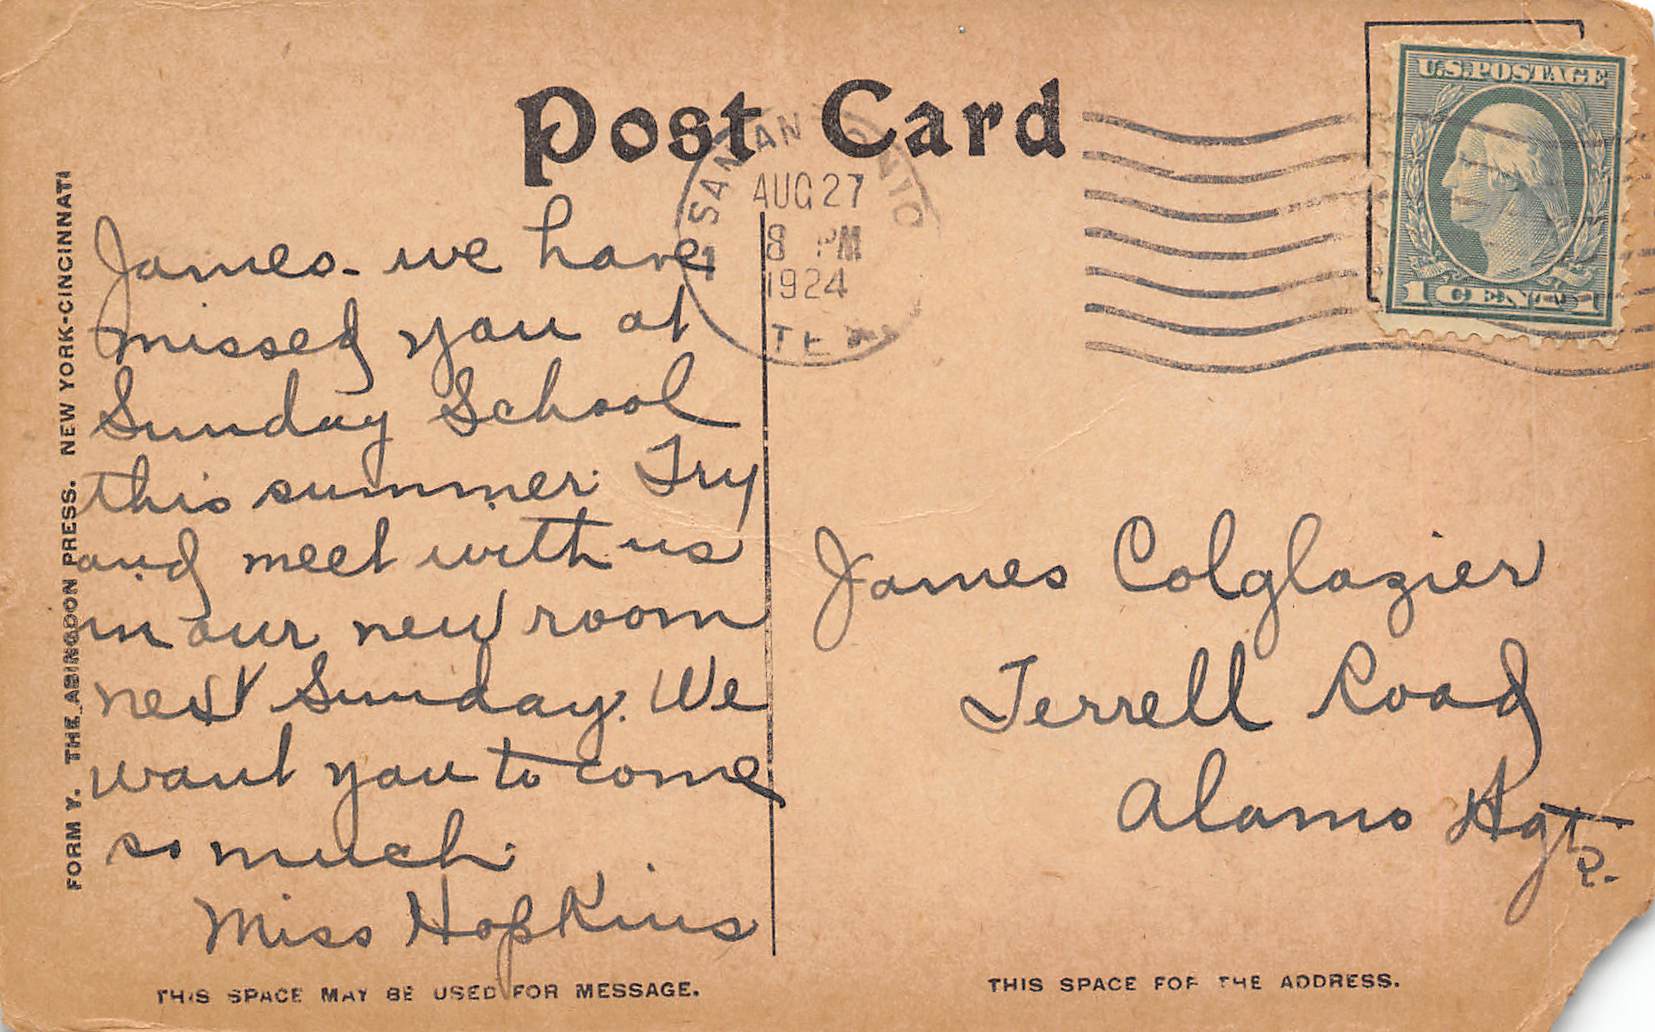 Post Card
U.S. POSTAGE
1 CENT 1
SAN ANTONIO
AUG 27
8 PM
1924
TEX
1
James - we have
missed you at
Sunday School
this summer. Try
and meet with us
in our new room
next Sunday. We
want you to come
so much.
Miss Hopkins
James Colglazier
Terrell Road
Alamo Hgts.
FORM Y. THE ABINGDON PRESS. NEW YORK-CINCINNATI
THIS SPACE MAY BE USED FOR MESSAGE.
THIS SPACE FOR THE ADDRESS.